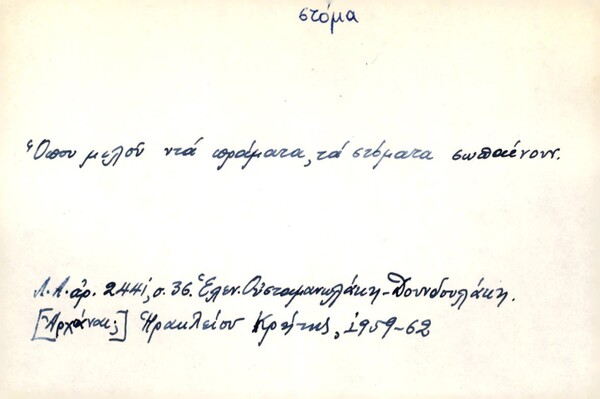 στόμα
Ὅπου μιλοῦν τά πράματα, τά στόματα σωπαίνουν.
Λ.Α. ἀρ. 2441, σ. 36. Ἑλεν. Οὐσταμανωλάκη-Δουνδουλάκη.
[Ἀρχάναι;] Ἡρακλείου Κρήτης, 1959-62